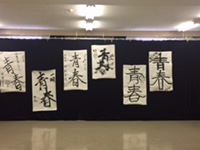 青春
青春
青春
青春
青春
青春